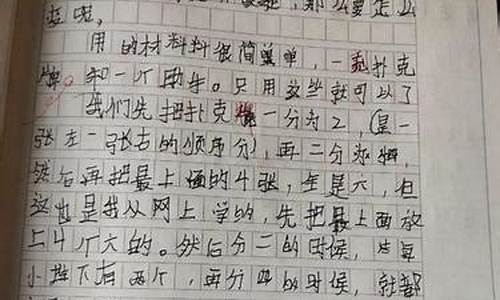 那么要怎么
啦呢,
用的材料料很简单单,一副扑克
牌。和一个助手。只用这些就可以了
我们先把扑克牌一分为2,(是一
张左一张右的顺序分),再二分
然后再把最上面的4张,全是六,但
这也是我从网上学的,先把最上面放
上4个六的。然后分二的时候,
小堆下有两个,再分四的时候,就都